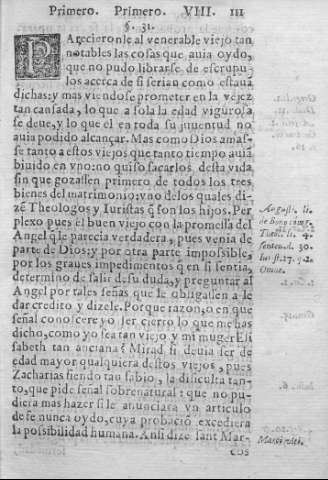 Primero. Primero. VIII. 111
§. 31.
PArecieronle al venerable viejo tan
notables las cosas que auia oydo,
que no pudo librarse de escrupu
los acerca de si serian como estauā
dichas: y mas viendose prometer en la vejez
tan cansada, lo que a sola la edad vigurosa
se deue, y lo que el en toda su juuentud no
auia podido alcançar. Mas como Dios amas-
se tanto a estos viejos que tanto tiempo auiā
biuido en vno: no quiso sacarlos desta vida
sin que gozassen primero de todos los tres
bienes del matrimonio: vno de los quales di-
zē Theologos y Iuristas q̄ son los hijos. Per
plexo pues el buen viejo con la promessa del
Angel q̄ le parecia verdadera, pues venia de
parte de Dios: y por otra parte impossible,
por los graues impedimentos q̄ en si sentia,
determino de salir desu duda, y preguntar al
Angel por tales señas que le obligassen a le
dar credito y dizele. Por que razon, o en que
señal conoscere yo ser cierto lo que me has
dicho, como yo sea tan viejo y mi muger Eli
sabeth tan anciana? Mirad si deuia ser de
edad mayor qualquiera destos viejos, pues
Zacharias siendo tan sabio, la dificulta tan-
to, que pide señal sobrenatural: que no pu-
diera mas hazer si le anunciara vn articulo
de fe nunca oydo, cuya probaciō excediera
la possibilidad humana. Ansi dize sant Mar-
cos
August. li.
de bono coniug.
Theol. li. 4.
senten. d. 30.
Iurist. 27. q. 2.
Omne.